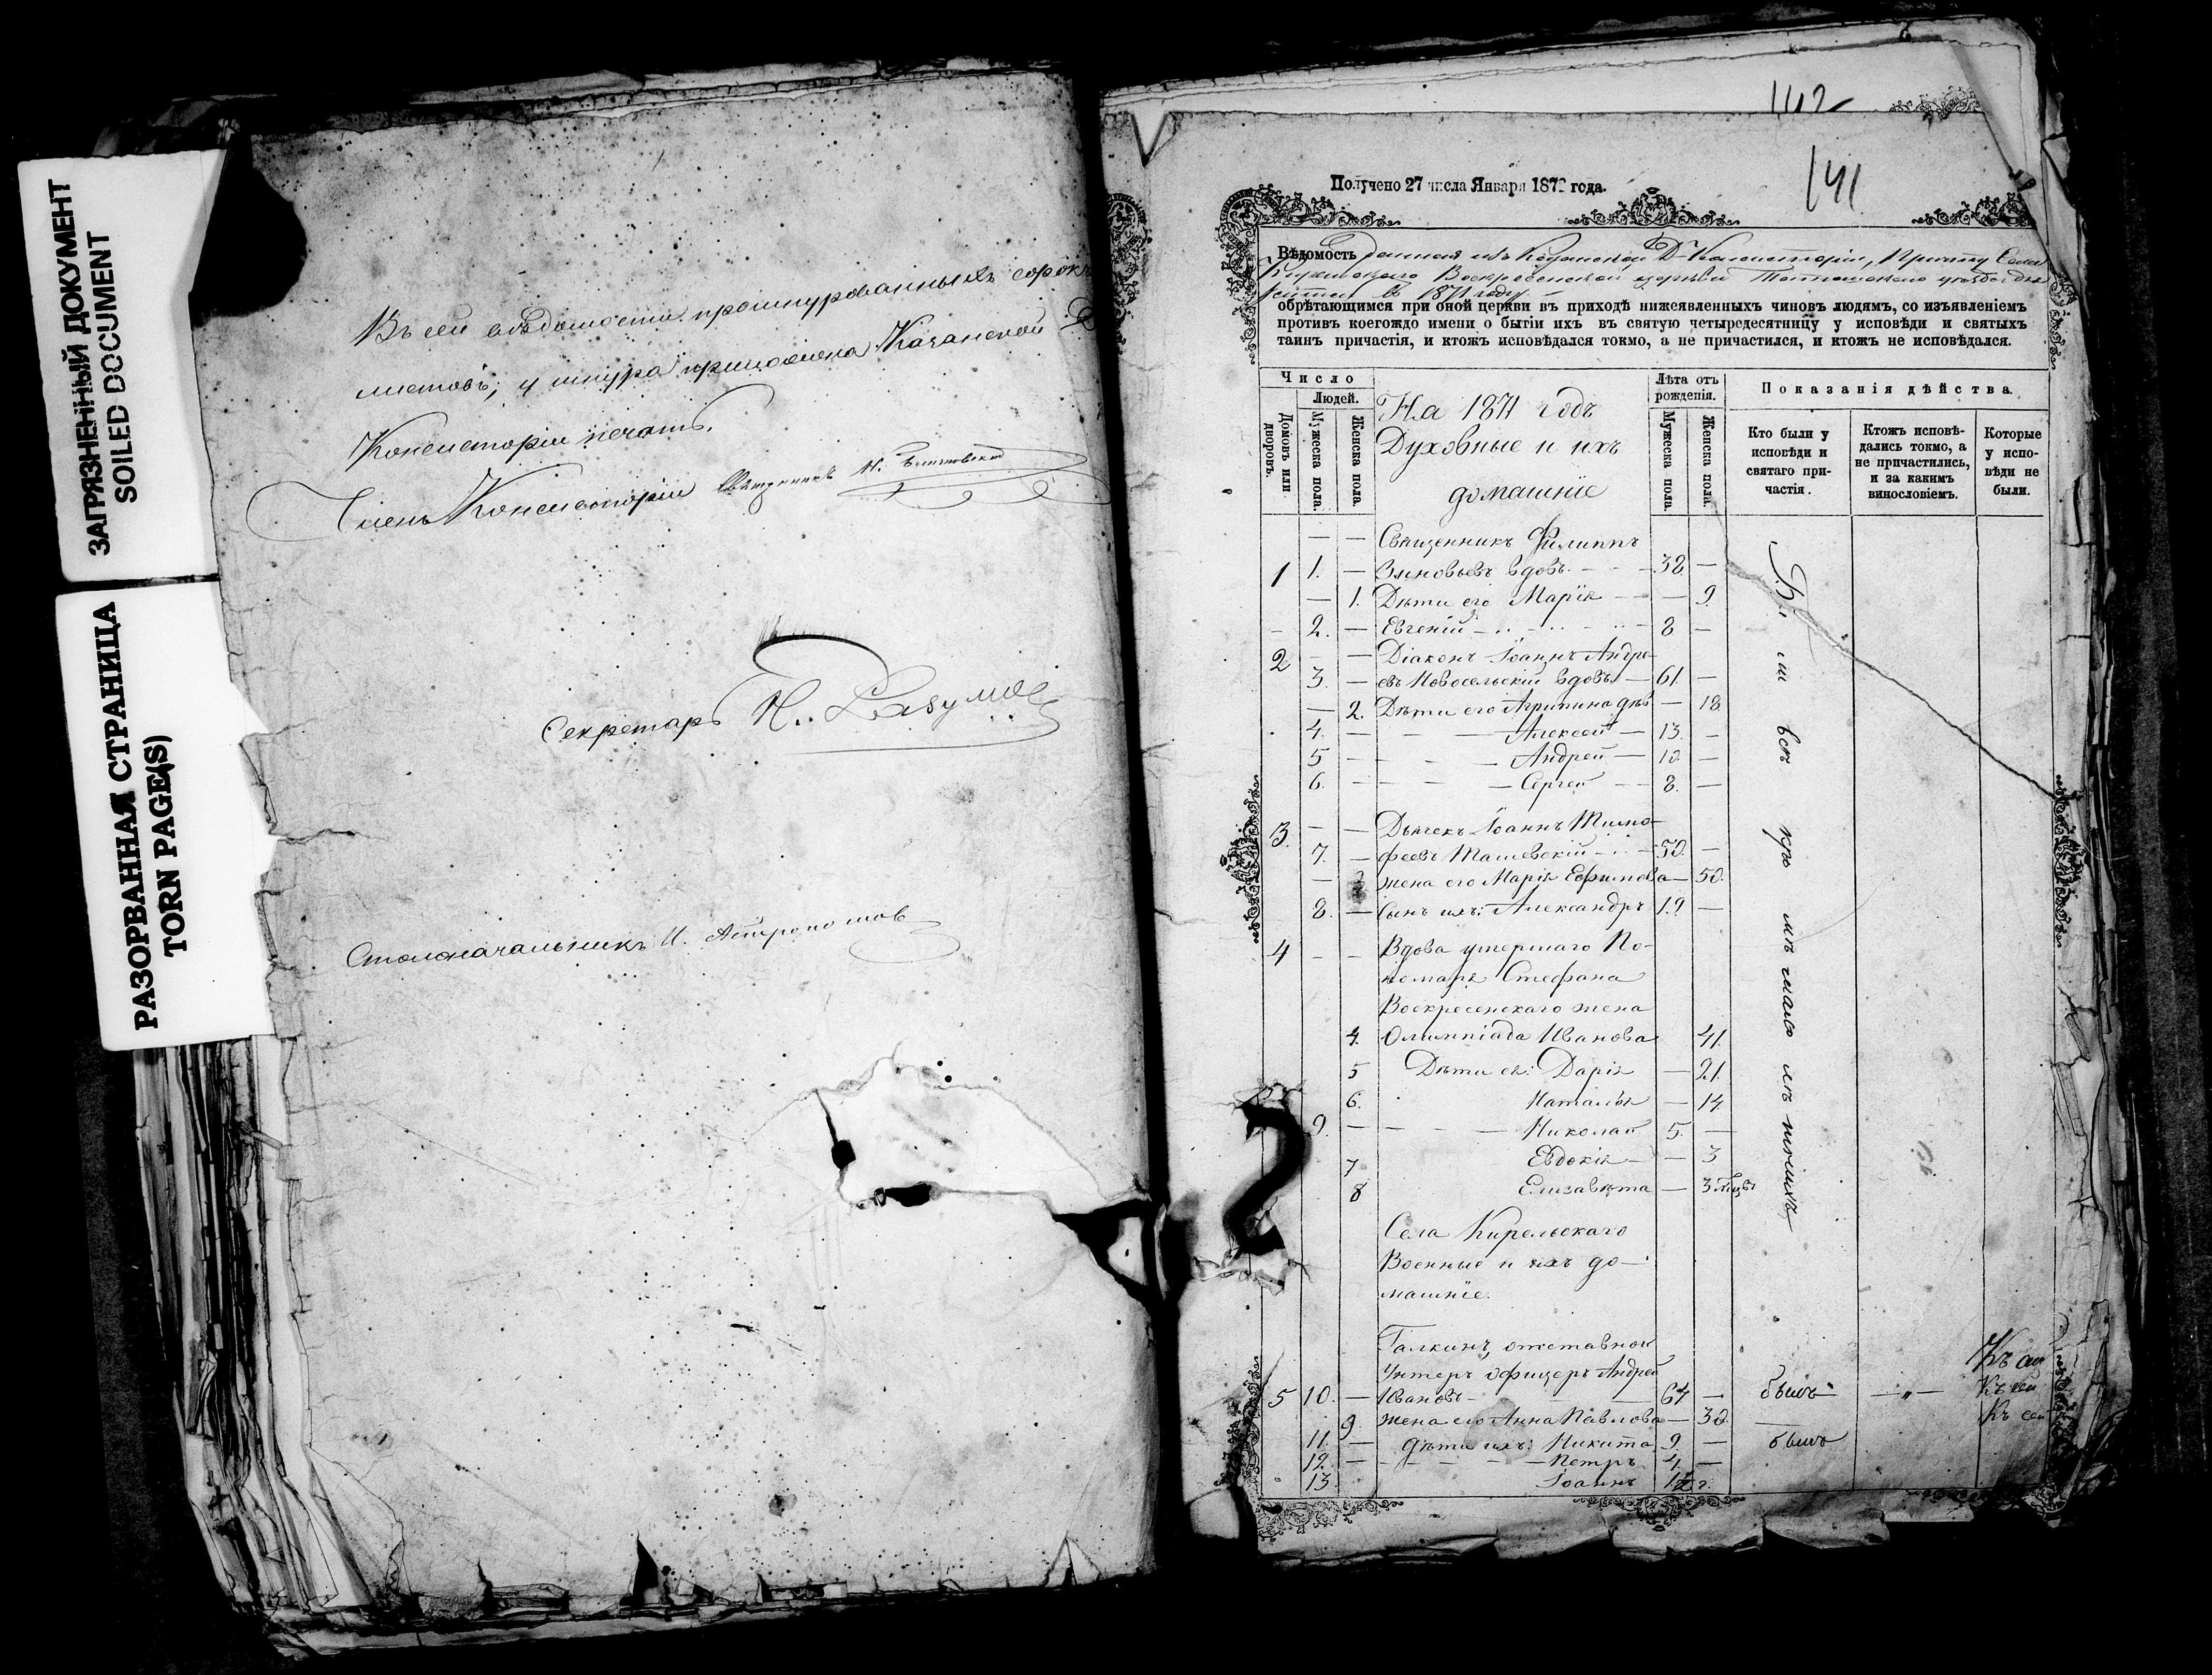 ЗАГРЯЗНЕННЫЙ ДОКУМЕНТ
SOILED DOCUMENT
РАЗОРВАННАЯ СТРАНИЦА
TORN PAGE(S)
Въ сей вѣдомости прошнурованныхъ сорокъ
листовъ, у шнура приложена Казанской Д
Консисторіи печать.
Членъ Консисторіи Священникъ
Секретарь Н. Разумов
Столоначальникъ И.
142
141
Получено 27 числа Января 1872 года.
Вѣдомость данная изъ Казанской Д. Консисторіи, Причту Села
Воскресенской церкви Тетюшскаго уѣзда
въ 1871 году
обрѣтающимся при оной церкви въ приходѣ нижеявленныхъ чиновъ людямъ, со изъявленіемъ
противъ коегождо имени о бытіи ихъ въ святую четыредесятницу у исповѣди и святыхъ
таинъ причастія, и ктожъ исповѣдался токмо, а не причастился, и ктожъ не исповѣдался.
Число
Людей.
Домовъ или дворовъ.
Мужеска пола.
Женска пола.
На 1871 годъ
Духовные и ихъ
домашніе
Лѣта отъ рожденія.
Мужеска пола.
Женска пола.
Показанія дѣйства.
Кто были у исповѣди и святаго причастія.
Ктожъ исповѣдались токмо, а не причастились, и за какимъ винословіемъ.
Которые у исповѣди не были.
— — Священникъ Филиппъ
1 1. — Зиновьевъ вдовъ — 38 —
— 1. Дѣти его Марія — — 9
2. — Евгеній — 8 —
2 — — Діаконъ Іоаннъ Андре-
3. — евъ Новосельскій вдовъ — 61. —
— 2. Дѣти его Агрипина дѣв — 18
4. — Алексей — 13. —
5 — Андрей — 10. —
6. — Сергей — 8. —
3. — — Дьячекъ Іоаннъ Тимо-
7. — феевъ Ташевскій — 50. —
— 3 жена его Марія Ефимова — 50.
8. — Сынъ ихъ: Александръ 19 —
4 — — Вдова умершаго По-
номаря Стефана
Воскресенскаго жена
4. Олимпіада Иванова 41.
5 Дѣти ея: Дарія — 21.
6. Наталья — 14.
9. — Николай 5. —
7 Евдокія — — 3
8 Елизавета — 3 мѣць
Были всѣ кромѣ малолѣтнихъ
Села Кирельскаго
Военные и ихъ до-
машніе.
Галкинъ, отставной
Унтеръ офицеръ Андрей
5 10. — Ивановъ — 64 — былъ — „ —
9. жена его Анна Павлова — 30. —
11. — дѣти ихъ: Никита 9. — былъ
12. — Петръ 4. —
13 Іоаннъ